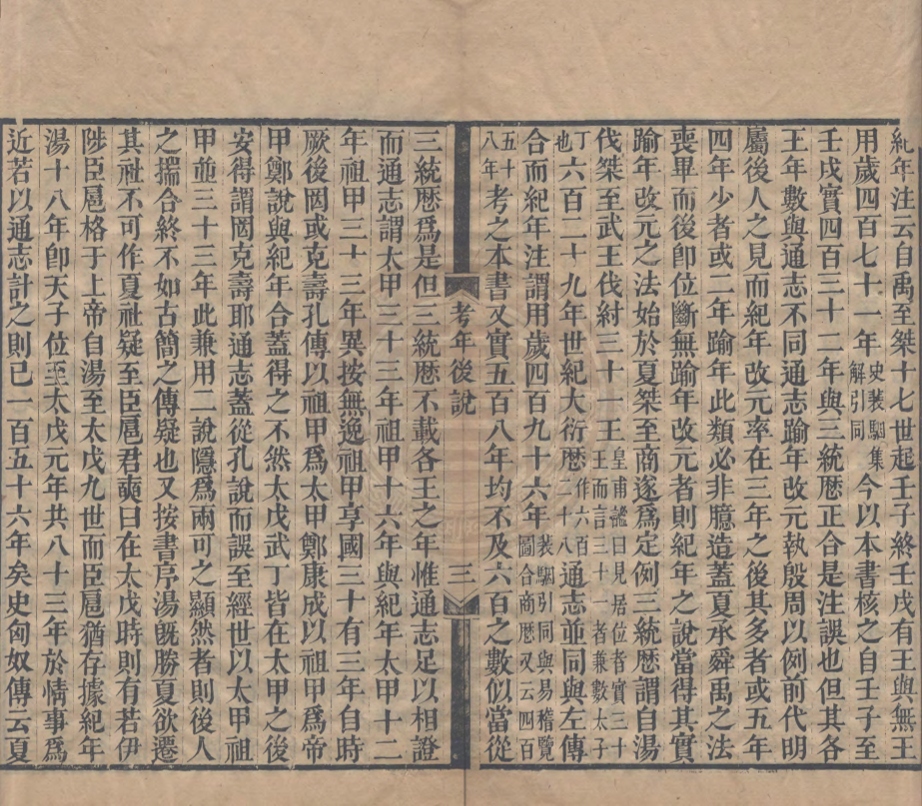 紀年注云自禹至桀十七世起壬子終壬戌有王與無王
用歲四百七十一年史裴駰集解引同今以本書核之自壬子至
壬戌實四百三十二年與三統厯正合是注誤也但其各
王年數與通志不同通志踰年改元執殷周以例前代明
屬後人之見而紀年改元率在三年之後其多者或五年
四年少者或二年踰年此類必非臆造蓋夏承舜禹之法
喪畢而後卽位斷無踰年改元者則紀年之說當得其實
踰年改元之法始於夏桀至商遂爲定例三統厯謂自湯
伐桀至武王伐紂三十一王皇甫謐曰見居位者實三十王而言三十一者兼數太子
丁也六百二十九年世紀大衍厯二十八王作六百通志並同與左傳
合而紀年注謂用歲四百九十六年裴駰引同與易稽覽圖合商厯又云四百
五十八年考之本書又實五百八年均不及六百之數似當從
考年後說
三
三統厯爲是但三統厯不載各王之年惟通志足以相證
而通志謂太甲三十三年祖甲十六年與紀年太甲十二
年祖甲三十三年異按無逸祖甲享國三十有三年自時
厥後罔或克壽孔傳以祖甲爲太甲鄭康成以祖甲爲帝
甲鄭說與紀年合蓋得之不然太戊武丁皆在太甲之後
安得謂罔克壽耶通志蓋從孔說而誤至經世以太甲祖
甲並三十三年此兼用二說隱爲兩可之顯然者則後人
之揣合終不如古簡之傳疑也又按書序湯旣勝夏欲遷
其社不可作夏社疑至臣扈君奭曰在太戊時則有若伊
陟臣扈格于上帝自湯至太戊九世而臣扈猶存據紀年
湯十八年卽天子位至太戊元年共八十三年於情事爲
近若以通志計之則已一百五十六年矣史匈奴傳云夏